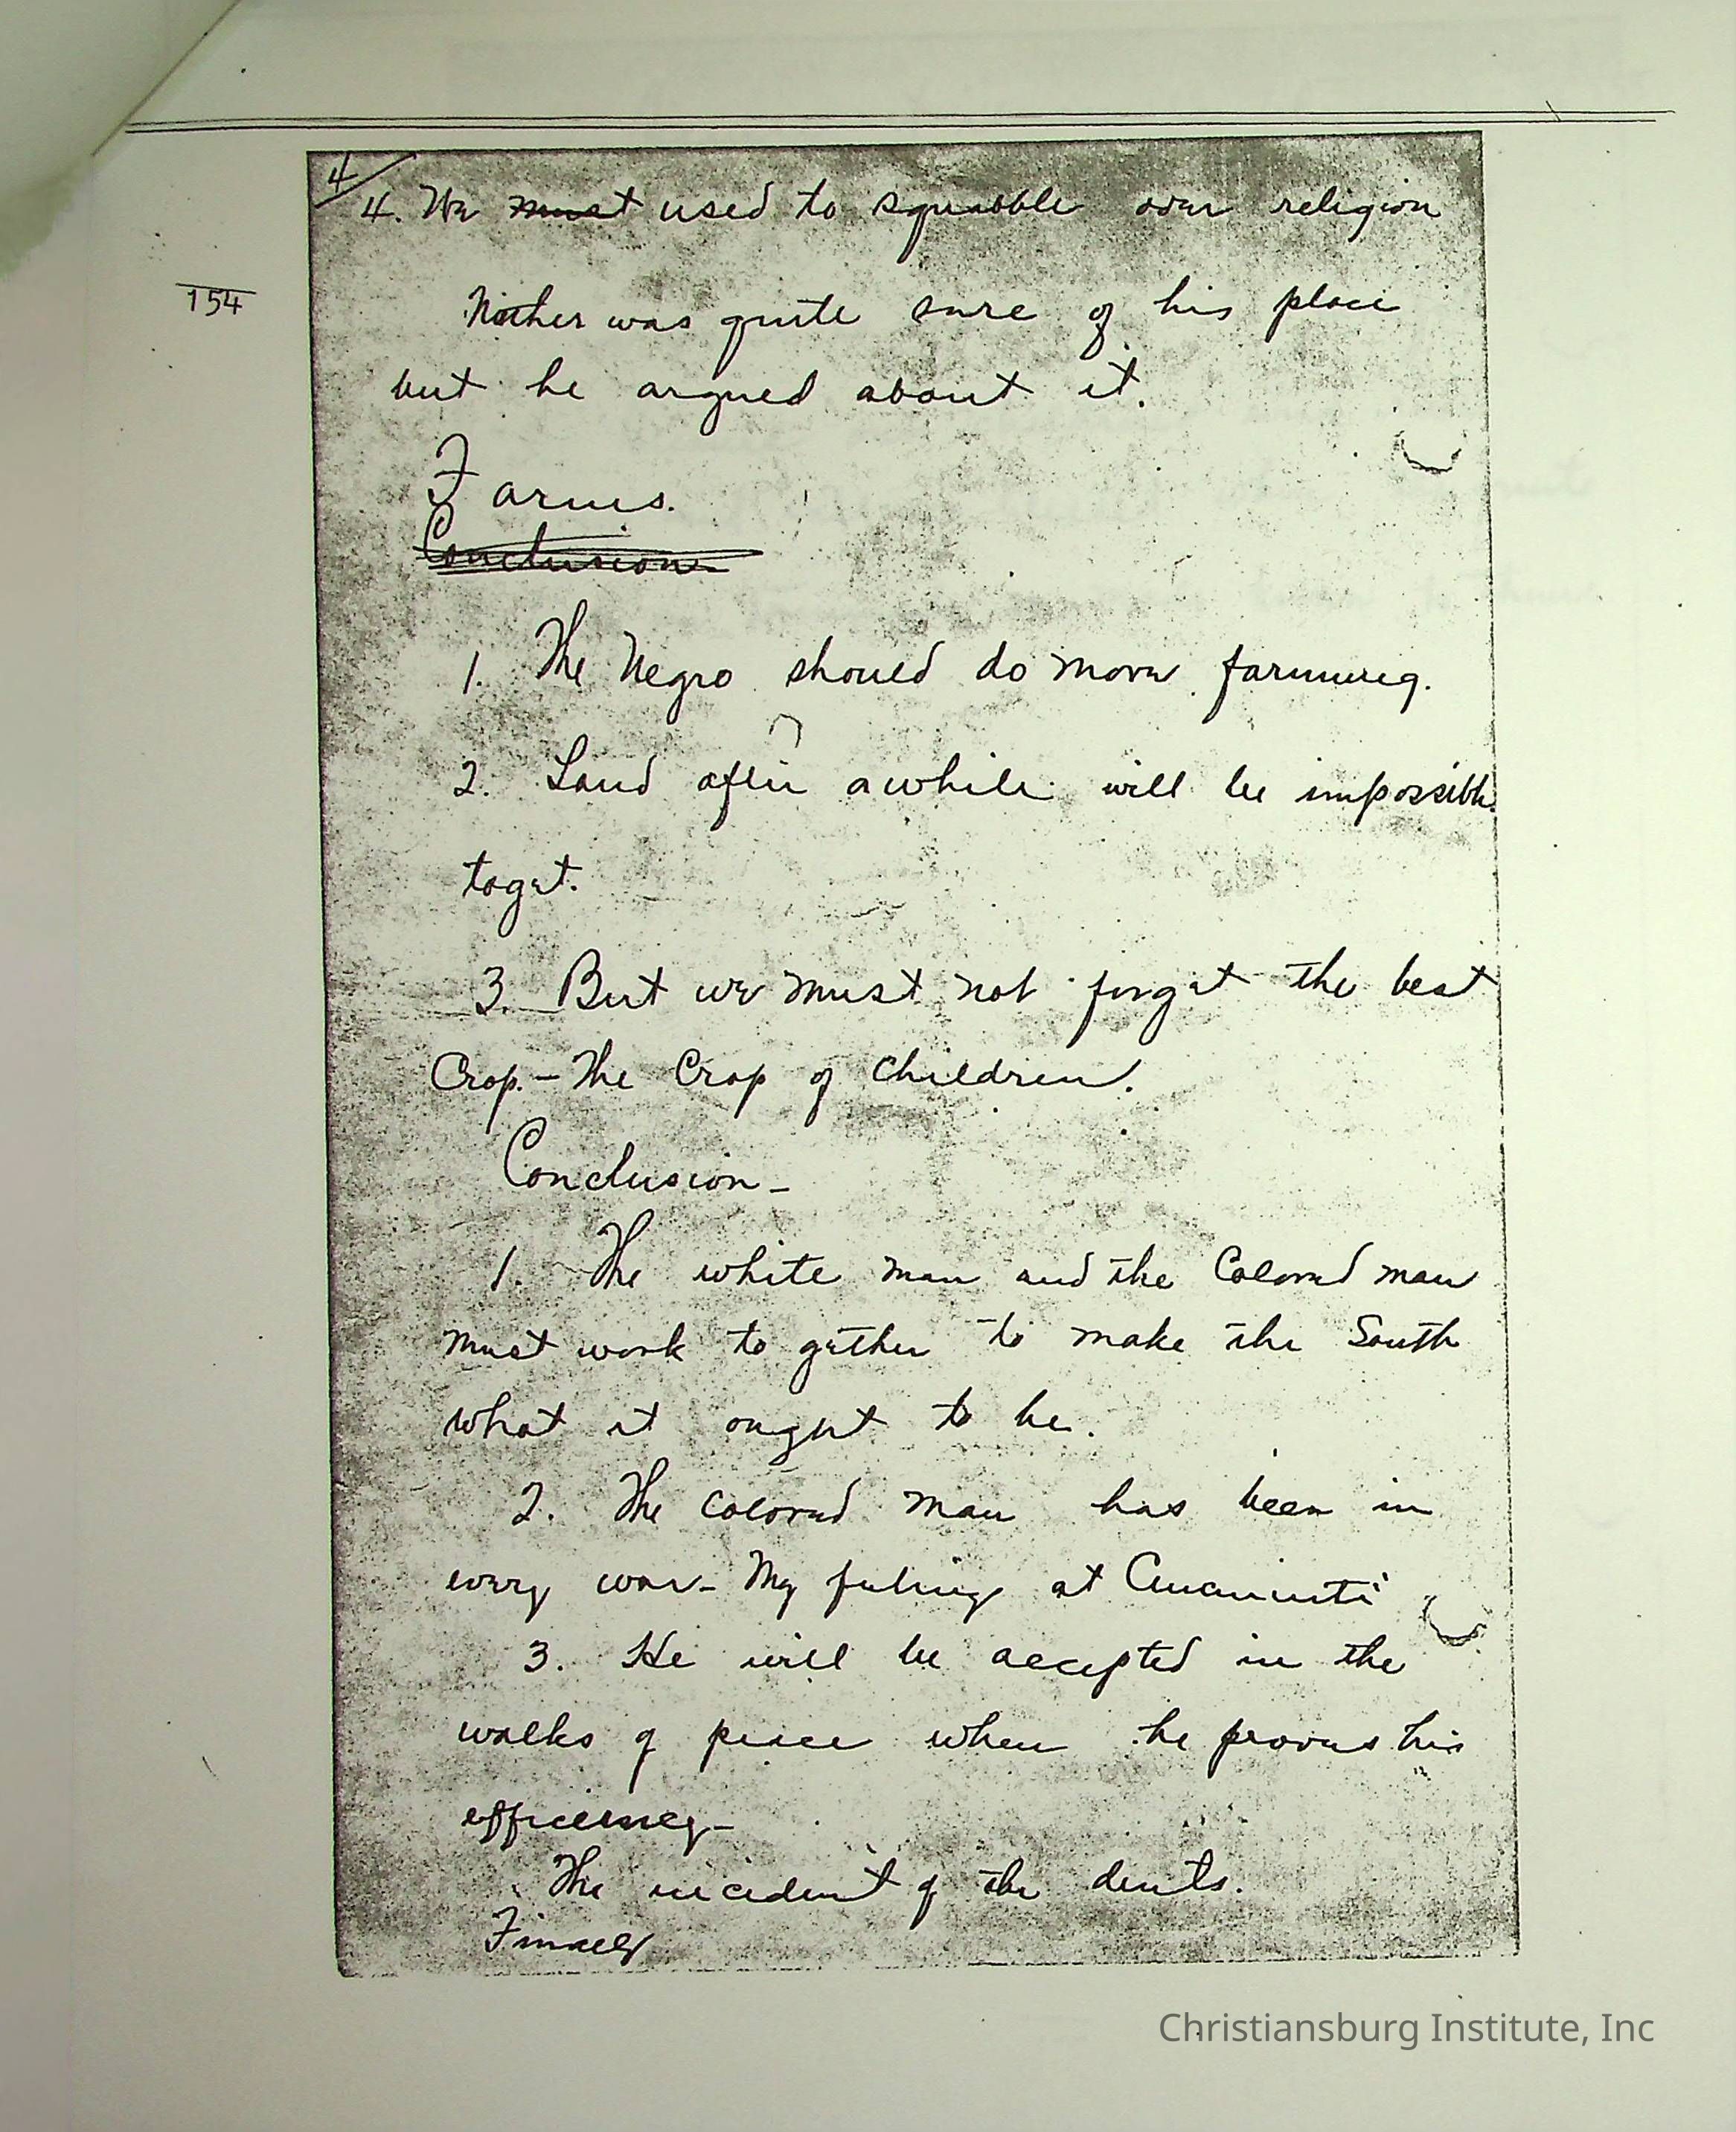 4
4. We must used to squabble over religion
154
Neither was quite sure of his place
but he argued about it.
Farms.
Conclusion
1. The Negro should do more farming.
2. Land after awhile will be impossible
to get.
3. But we must not forget the best
Crop.- The Crop of Children.
Conclusion -
1. The white man and the Colored man
must work to gether to make the South
what it ought to be.
2. The colored man has been in
every war - My feelings at Cincinnati
3. He will be accepted in the
walks of peace when he proves his
efficiency -
The incident of the
Finally
Christiansburg Institute, Inc